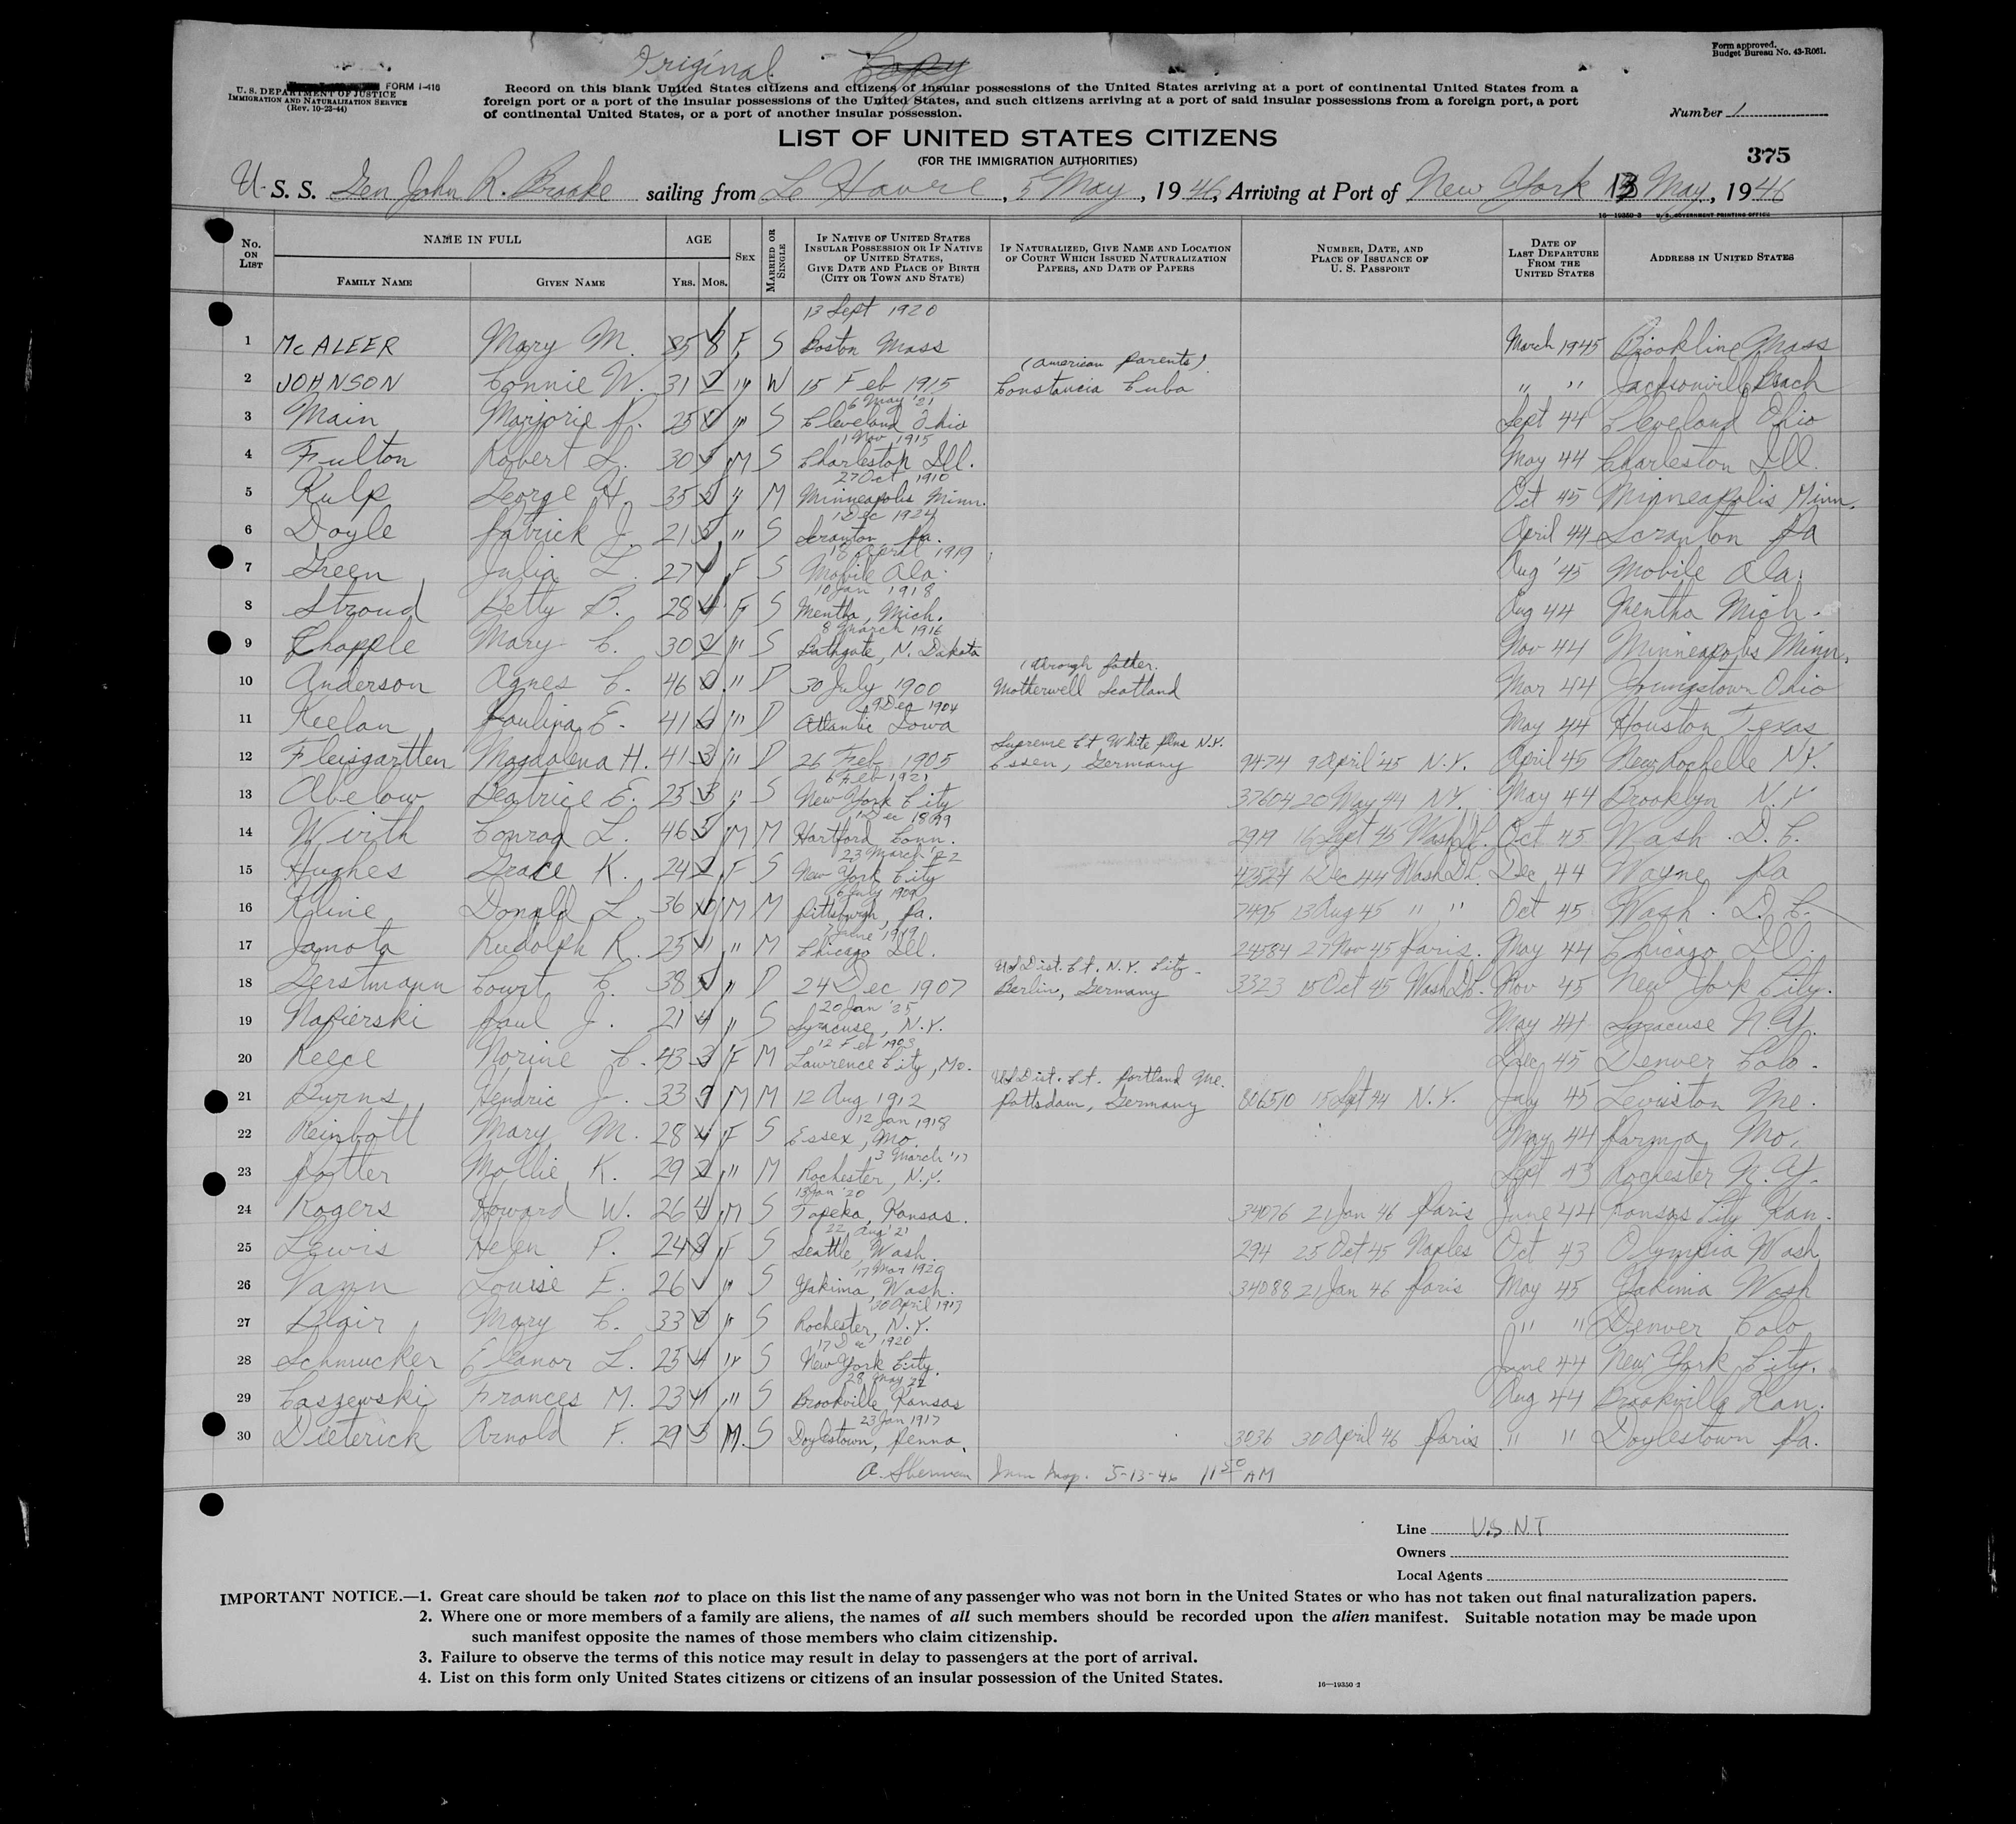 Original Copy
Form approved.
Budget Bureau No. 43-R061.
FORM I-416
U. S. DEPARTMENT OF JUSTICE
IMMIGRATION AND NATURALIZATION SERVICE
(Rev. 10-23-44)
Record on this blank United States citizens and citizens of insular possessions of the United States arriving at a port of continental United States from a
foreign port or a port of the insular possessions of the United States, and such citizens arriving at a port of said insular possessions from a foreign port, a port
of continental United States, or a port of another insular possession.
Number 1
LIST OF UNITED STATES CITIZENS
(FOR THE IMMIGRATION AUTHORITIES)
375
U. S. S. Gen John R. Brooke sailing from Le Havre, 5 May, 1946, Arriving at Port of New York 13 May, 1946
16—19350-3 U. S. GOVERNMENT PRINTING OFFICE
No. ON LIST NAME IN FULL FAMILY NAME GIVEN NAME AGE YRS. MOS. SEX MARRIED OR SINGLE IF NATIVE OF UNITED STATES INSULAR POSSESSION OR IF NATIVE OF UNITED STATES, GIVE DATE AND PLACE OF BIRTH (CITY OR TOWN AND STATE) IF NATURALIZED, GIVE NAME AND LOCATION OF COURT WHICH ISSUED NATURALIZATION PAPERS, AND DATE OF PAPERS NUMBER, DATE, AND PLACE OF ISSUANCE OF U. S. PASSPORT DATE OF LAST DEPARTURE FROM THE UNITED STATES ADDRESS IN UNITED STATES
13 Sept 1920
1 McALEER Mary M. 25 8 F S Boston Mass March 1945 Brookline Mass
(American Parents)
2 JOHNSON Connie W. 31 2 " W 15 Feb 1915 Constancia Cuba " " Jacksonville Beach
6 May '21
3 Main Marjorie 25 0 " S Cleveland Ohio Sept 44 Cleveland Ohio
1 Nov 1915
4 Fulton Robert L. 30 5 M S Charleston Ill. May 44 Charleston Ill.
27 Oct 1910
5 Kulp George H. 35 " M Minneapolis Minn. Oct 45 Minneapolis Minn.
1 Dec 1924
6 Doyle Patrick J. 21 5 " S Scranton Pa. April 44 Scranton Pa
18 April 1919
7 Green Julia L. 27 F S Mobile Ala. Aug '45 Mobile Ala.
10 Jan 1918
8 Stroud Betty B. 28 4 F S Mentha, Mich. Aug 44 Mentha Mich.
8 March 1916
9 Chapple Mary C. 30 2 " S Bathgate, N. Dakota Nov 44 Minneapolis Minn.
(through father.
10 Anderson Agnes C. 46 " D 30 July 1900 Motherwell Scotland Mar 44 Youngstown Ohio
9 Dec 1904
11 Keelan Paulina E. 41 " D Atlantic Iowa May 44 Houston Texas
Supreme Ct White Plns N.Y.
12 Fleisgartten Magdalena H. 41 3 " D 26 Feb 1905 Essen, Germany 9474 9 April '45 N.Y. April 45 New Rochelle NY.
6 Feb 1921
13 Abelow Beatrice E. 25 3 " S New York City 37604 20 May 44 NY. May 44 Brooklyn N.Y
1 Dec 1899
14 Wirth Conrad L. 46 5 M M Hartford Conn. 2919 16 Sept 45 Wash DC. Oct 45 Wash. D.C.
23 March '22
15 Hughes Grace K. 24 2 F S New York City 42524 1 Dec 44 Wash DC. Dec 44 Wayne Pa
6 July 1909
16 Kline Donald L. 36 10 M M Pittsburgh, Pa. 7495 13 Aug 45 " " Oct 45 Wash. D.C.
7 June 1919
17 Jamota Rudolph R. 25 11 " M Chicago Ill. 24584 27 Nov 45 Paris. May 44 Chicago Ill.
US Dist. Ct. N.Y. City.
18 Gerstmann Court C. 38 " D 24 Dec 1907 Berlin, Germany 3323 15 Oct 45 Wash DC. Nov 45 New York City.
20 Jan '25
19 Napierski Paul J. 21 4 " S Syracuse, N.Y. May 44 Syracuse N.Y.
12 Feb 1903
20 Reece Norine C. 43 3 F M Lawrence City, Mo. Dec 45 Denver Colo.
US Dist. Ct. Portland Me.
21 Burns Hendric J. 33 9 M M 12 Aug 1912 Pottsdam, Germany 806510 15 Sept 44 N.Y. July 45 Lewiston Me.
12 Jan 1918
22 Reinbott Mary M. 28 4 F S Essex, Mo. May 44 Parma, Mo.
3 March '17
23 Potter Mollie K. 29 2 " M Rochester, N.Y. Sept 43 Rochester N.Y.
13 Jan '20
24 Rogers Howard W. 26 4 M S Topeka, Kansas. 34076 21 Jan 46 Paris June 44 Kansas City Kan.
22 Aug '21
25 Lewis Helen P. 24 8 F S Seattle Wash. 294 25 Oct 45 Naples Oct 43 Olympia Wash
17 Mar 1920
26 Vann Louise E. 26 " S Yakima, Wash. 34088 21 Jan 46 Paris May 45 Yakima Wash
30 April 1913
27 Blair Mary C. 33 0 " S Rochester, N.Y. " " Denver Colo
17 Dec 1920
28 Schmucker Eleanor L. 25 4 " S New York City. June 44 New York City.
28 May 22
29 Caszewski Frances M. 23 11 " S Brookville, Kansas Aug 44 Brookville Kan.
23 Jan 1917
30 Dieterick Arnold F. 29 3 M. S Doylestown, Penna. 3036 30 April 46 Paris " " Doylestown Pa.
A. Sherman Imm Insp. 5-13-46 11 50 AM
Line U.S.N.T
Owners
Local Agents
IMPORTANT NOTICE.—1. Great care should be taken not to place on this list the name of any passenger who was not born in the United States or who has not taken out final naturalization papers.
2. Where one or more members of a family are aliens, the names of all such members should be recorded upon the alien manifest. Suitable notation may be made upon
such manifest opposite the names of those members who claim citizenship.
3. Failure to observe the terms of this notice may result in delay to passengers at the port of arrival.
4. List on this form only United States citizens or citizens of an insular possession of the United States.
16—19350-2